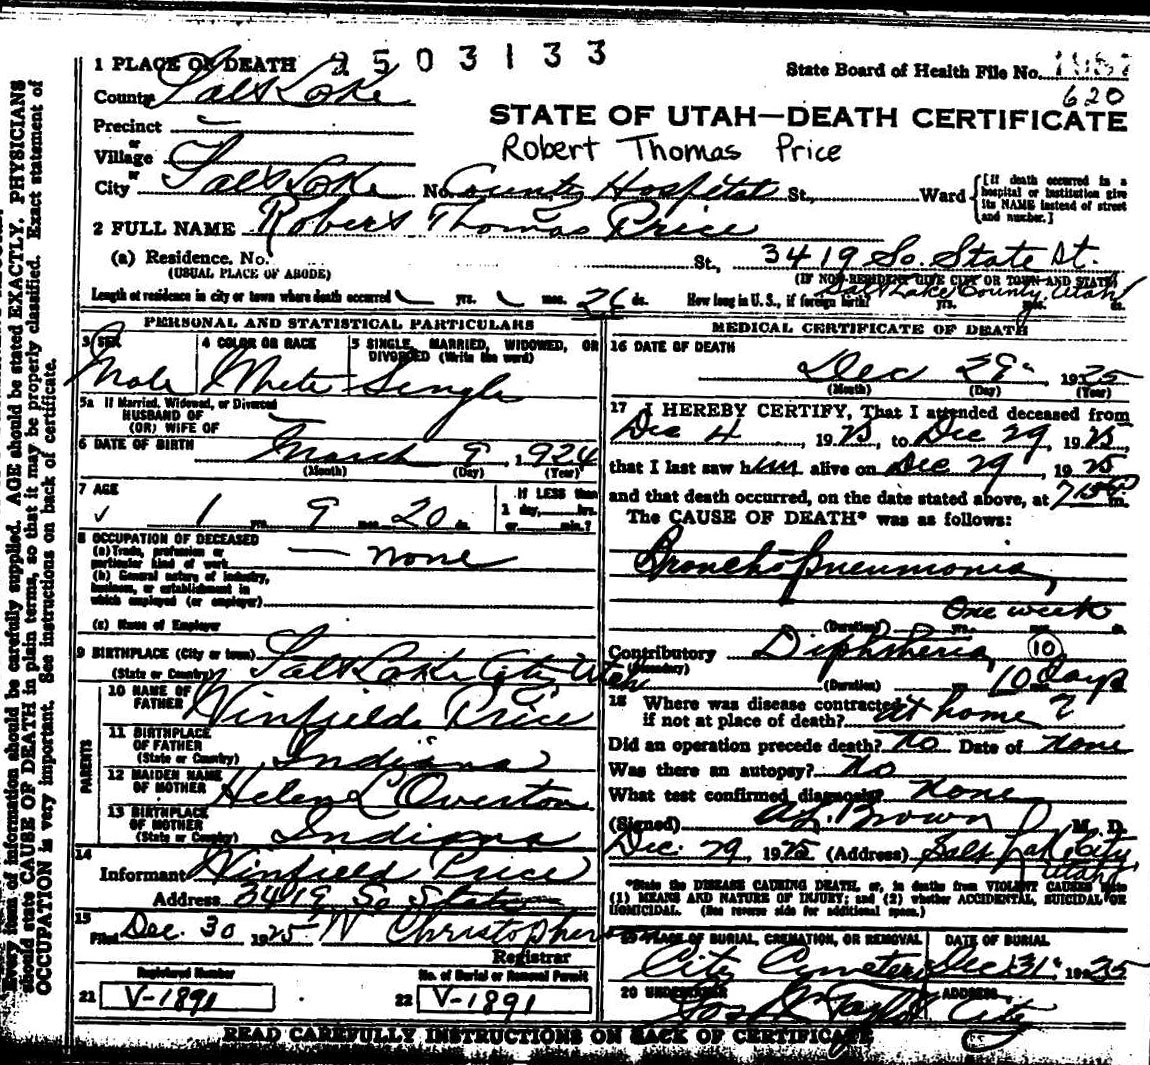 1 PLACE OF DEATH 2503133
State Board of Health File No. 1957
620
County Salt Lake
STATE OF UTAH—DEATH CERTIFICATE
Precinct
or
Village
Robert Thomas Price
or
City Salt Lake No. County Hospital St., Ward [If death occurred in a hospital or institution give its NAME instead of street and number.]
2 FULL NAME Robert Thomas Price
(a) Residence. No. St., 3419 So. State St.
(USUAL PLACE OF ABODE) (IF NON-RESIDENT GIVE CITY OR TOWN AND STATE)
Salt Lake County, Utah
Length of residence in city or town where death occurred yrs. mos. 26 ds. How long in U.S., if foreign birth? yrs. mos. ds.
PERSONAL AND STATISTICAL PARTICULARS
3 SEX 4 COLOR OR RACE 5 SINGLE, MARRIED, WIDOWED, OR DIVORCED (Write the word)
Male White Single
5a If Married, Widowed, or Divorced
HUSBAND OF
(OR) WIFE OF
6 DATE OF BIRTH March 9, 1924
(Month) (Day) (Year)
7 AGE If LESS than
1 yrs. 9 mos. 20 ds. 1 day, hrs.
or min.?
8 OCCUPATION OF DECEASED
(a) Trade, profession or
particular kind of work none
(b) General nature of industry,
business, or establishment in
which employed (or employer)
(c) Name of Employer
9 BIRTHPLACE (City or town)
(State or Country) Salt Lake City Utah
PARENTS
10 NAME OF
FATHER Winfield Price
11 BIRTHPLACE
OF FATHER
(State or Country) Indiana
12 MAIDEN NAME
OF MOTHER Helen L Overton
13 BIRTHPLACE
OF MOTHER
(State or Country) Indiana
14
Informant Winfield Price
Address 3419 So State
15
Filed Dec. 30 1925 W Christopherson
Registrar
Registered Number No. of Burial or Removal Permit
21 V-1891 22 V-1891
MEDICAL CERTIFICATE OF DEATH
16 DATE OF DEATH
Dec 29, 1925
(Month) (Day) (Year)
17 I HEREBY CERTIFY, That I attended deceased from
Dec 4, 1925, to Dec 29, 1925,
that I last saw him alive on Dec 29, 1925
and that death occurred, on the date stated above, at 715 P m.
The CAUSE OF DEATH* was as follows:
Broncho pneumonia,
One week
(Duration) yrs. mos. ds.
Contributory Diphtheria, 10
(Secondary) (Duration) yrs. 10 Days
18 Where was disease contracted
if not at place of death? at home ?
Did an operation precede death? No Date of None
Was there an autopsy? No
What test confirmed diagnosis? None
(Signed) A.L. Brown M. D.
Dec. 29, 1925 (Address) Salt Lake City,
Utah
*State the DISEASE CAUSING DEATH, or, in deaths from VIOLENT CAUSES state
(1) MEANS AND NATURE OF INJURY; and (2) whether ACCIDENTAL, SUICIDAL OR
HOMICIDAL. (See reverse side for additional space.)
19 PLACE OF BURIAL, CREMATION, OR REMOVAL DATE OF BURIAL
City Cemetery Dec 31, 1925
20 UNDERTAKER ADDRESS
Taylor City
READ CAREFULLY INSTRUCTIONS ON BACK OF CERTIFICATE
Every item of information should be carefully supplied. AGE should be stated EXACTLY. PHYSICIANS
should state CAUSE OF DEATH in plain terms, so that it may be properly classified. Exact statement of
OCCUPATION is very important. See instructions on back of certificate.